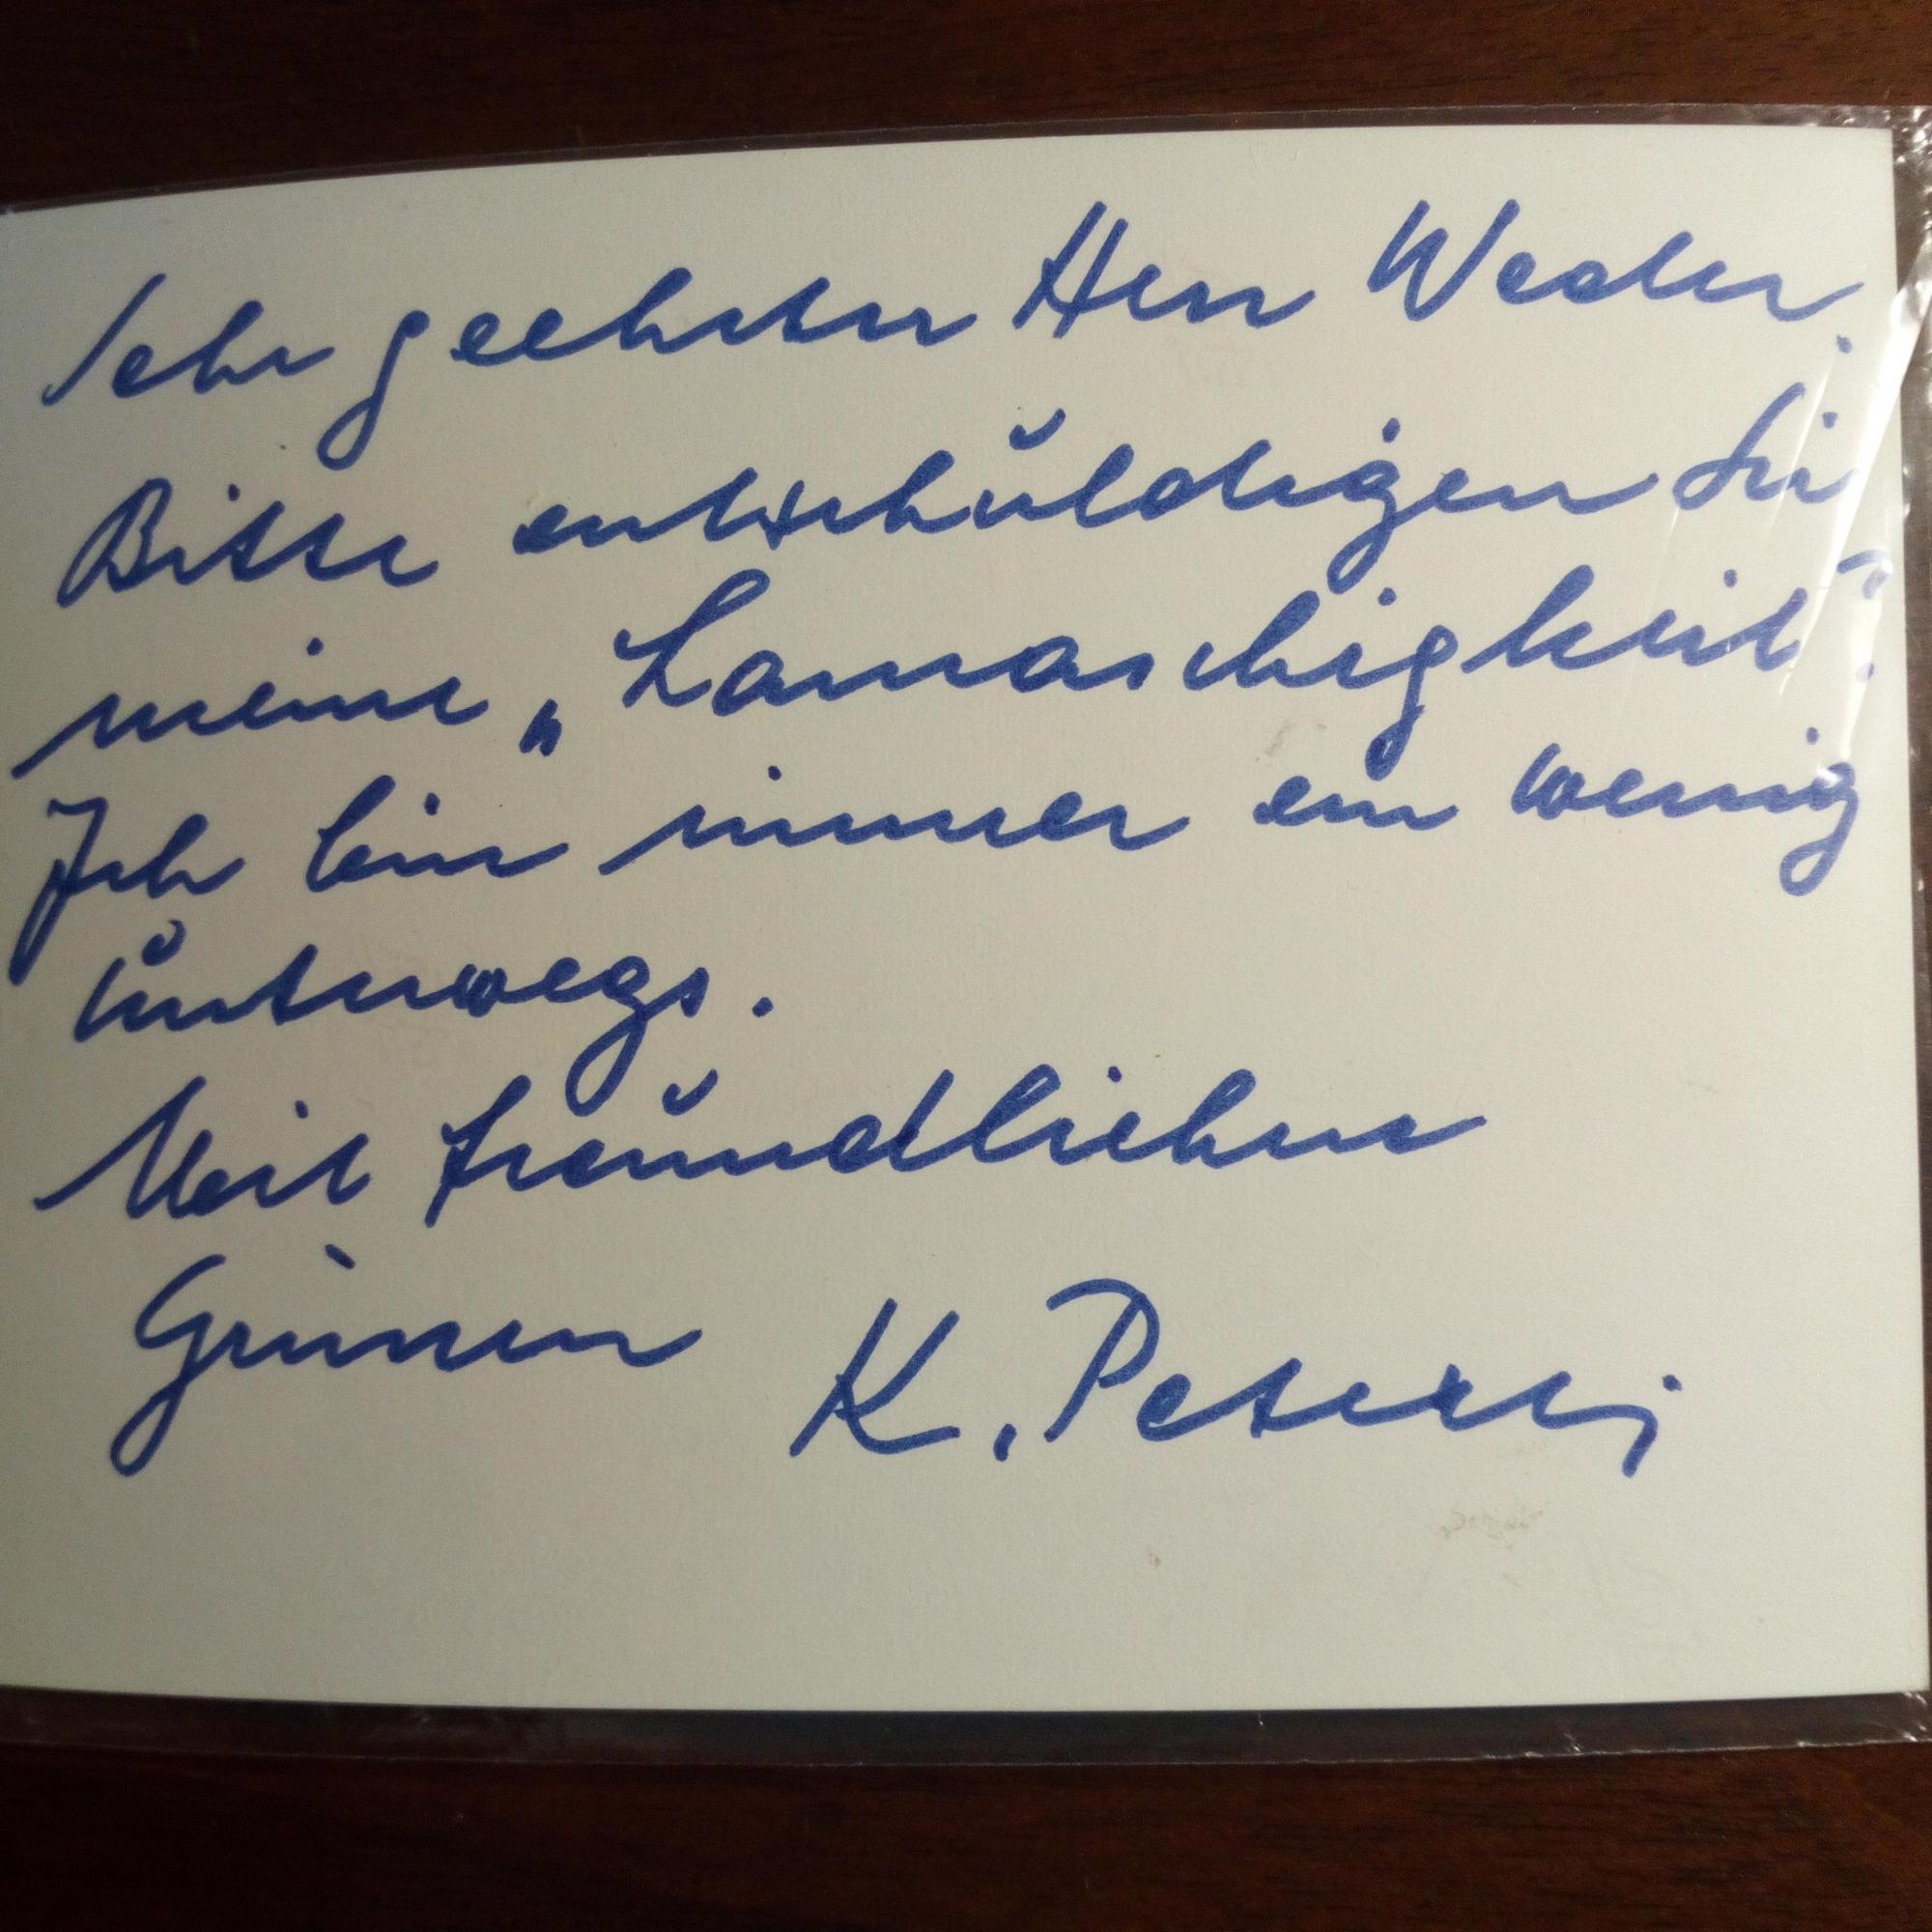 Sehr geehrter Herr Weder.
Bitte entschuldigen Sie
meine „Lamaschigkeit".
Ich bin immer ein wenig
unterwegs.
Mit freundlichen
Grüssen K. Peterli